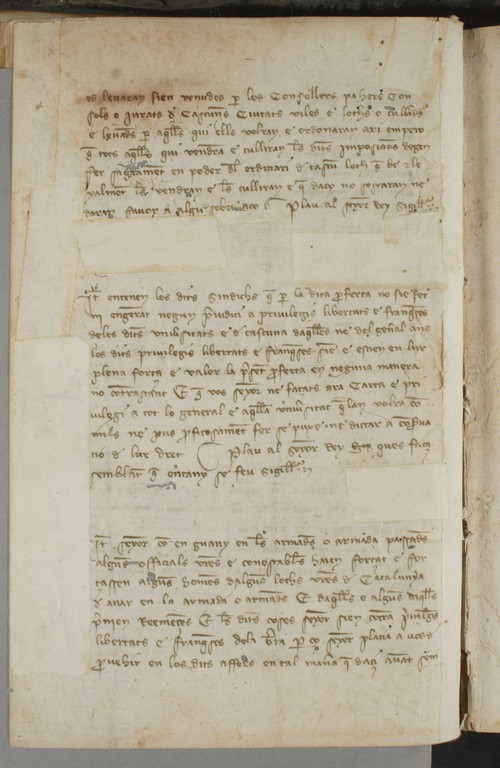 es levaran sien venudes p los Consellers pahers Con
sols o jurats d Cascuns Ciutats viles e lochs e cullides
e levades p aqlls qui ells volran e ordonaran axi empero
q tots aqlls qui vendra e culliran ls dits imposicions degen
fer sagrament en poder dl ordinari d cascu loch q be e le
yalment les vendran e ls culliran e q daço no
daran favor a algu Plau al senyor Rey
It entenen los dits Sindichs q p la dita pferta no sie fet
ni engenrat negun piudici a privilegis libertats e franqses
deles dits univsitats e d cascuna daqlles ne del genal ans
los dits privilegis libertats e franqses sien e estien en lur
plena força e valor la pset pferta en neguna manera
no contrastant E q vos senyor ne façats ara Carta e pri
vilegi a tot lo general e aqlla univsitat q lan volra co
mils ne pus pfitosament fer se puxe ne dictar a consva
cio d lur dret Plau al senyor Rey
semblat q entany se feu
It senyor co en guany en ls armades o armada passades
alguns officials vres e conestables haien forçat e for
çassen alguns homens dalguns lochs vres d Catalunya
d anar en la armada o armades E daqlls o alguns daqlls
psen reemçes E ls dits coses senyor sien contra privilegis
libertats e franqses dela tra p ço senyor placia a vos
pvehir en los dits affers en tal mana q daci avant sem